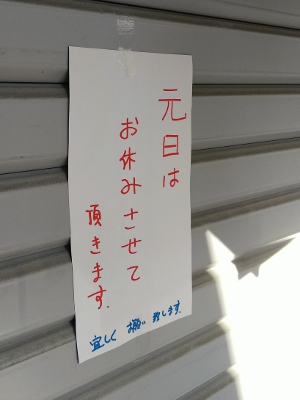 元日は
お休みさせて
頂きます.
宜しく願い致します.